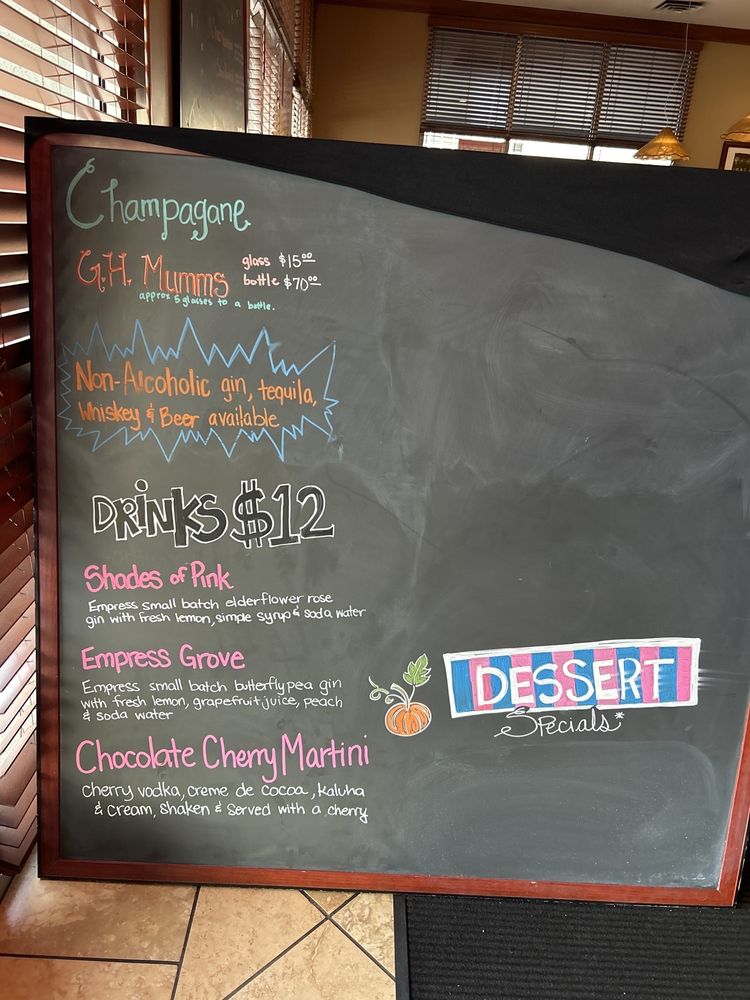 Champagane
G.H. Mumms glass $15.00
bottle $70.00
approx 5 glasses to a bottle.
Non-Alcoholic gin, tequila,
Whiskey & Beer available
DRiNKS $12
Shades of Pink
Empress small batch elderflower rose
gin with fresh lemon, simple syrup & soda water
Empress Grove
Empress small batch butterfly pea gin
with fresh lemon, grapefruit juice, peach
& soda water
Chocolate Cherry Martini
cherry vodka, creme de cocoa, kaluha
& cream, shaken & served with a cherry
DESSERT
Specials*